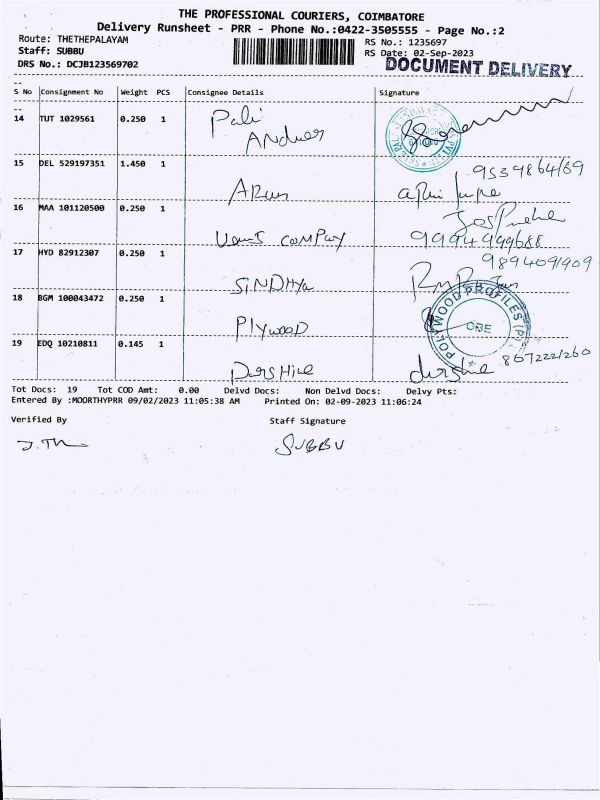 THE PROFESSIONAL COURIERS, COIMBATORE
Delivery Runsheet - PRR - Phone No.:0422-3505555 - Page No.:2
Route: THETHEPALAYAM RS No.: 1235697
Staff: SUBBU RS Date: 02-Sep-2023
DRS No.: DCJB123569702 DOCUMENT DELIVERY
S No Consignment No Weight PCS Consignee Details Signature
14 TUT 1029561 0.250 1 Pali
Andwer
15 DEL 529197351 1.450 1
Arun
16 MAA 101120500 0.250 1
COMPAY
17 HYD 82912307 0.250 1 9894091909
SiNDHya
18 BGM 100043472 0.250 1
PlYwooD POLYWOOD PROFILES (P) CBE
19 EDQ 10210811 0.145 1
DersHine
Tot Docs: 19 Tot COD Amt: 0.00 Delvd Docs: Non Delvd Docs: Delvy Pts:
Entered By :MOORTHYPRR 09/02/2023 11:05:38 AM Printed On: 02-09-2023 11:06:24
Verified By Staff Signature
SUBBU